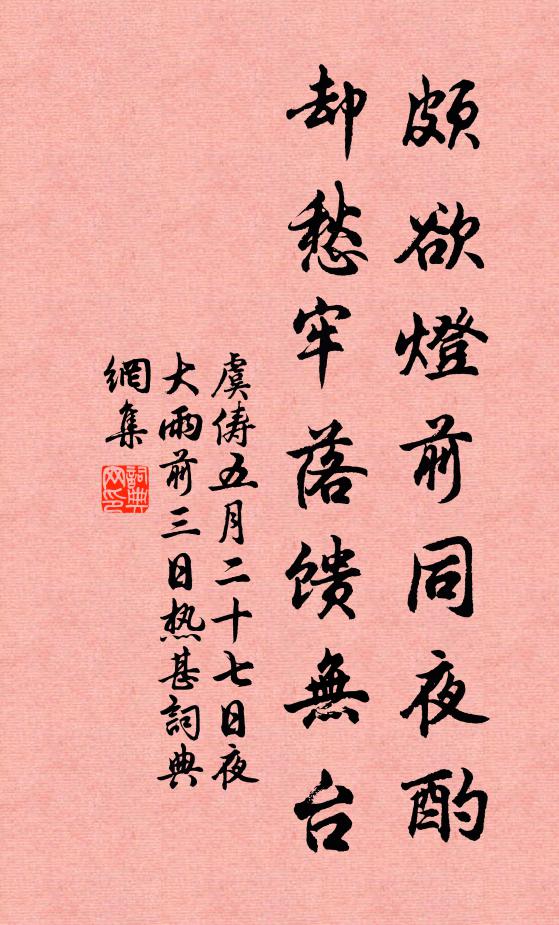 頗欲燈前同夜酌
却愁牢落馈無台
虞俦五月二十七日夜
大雨前三日热甚詞典
網集
詞典
网印